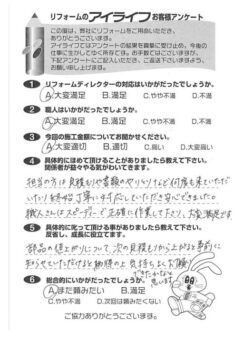 リフォームのアイライフお客様アンケート
この度は、弊社にリフォームをご用命いただき、
ありがとうございます。
アイライフではアンケートの結果を真摯に受け止め、今後の
仕事に生かしてゆく所存です。お手数ではございますが、
下記アンケートにご記入いただき、ご返送下さいますよう、
お願い申し上げます。
1 リフォームディレクターの対応はいかがだったでしょうか。
A.大変満足 B.満足 C.やや不満 D.不満
2 職人はいかがだったでしょうか。
A.大変満足 B.満足 C.やや不満 D.不満
3 今回の施工金額についてお聞かせください。
A.大変適切 B.適切 C.高い D.大変高い
4 具体的にほめて頂けることがありましたら教えて下さい。
関係者が益々やる気がわいてきます。
担当の方は見積もりや書類のやりとりなど何度も来ていただ
いたり終始丁寧に対応していただき安心できました。
職人さんはスピーディーで正確に作業して下さり、大変満足です
5 具体的に叱って頂ける事がありましたら教えて下さい。
反省し、成長に役立てます。
部品の値上がりについて、次の見積もりから上がると事前に
知らせていただけると納得の上気持ちよくお願い
できたかなと
思います。
6 総合的にいかがだったでしょうか。
A.また頼みたい B.満足
C.やや不満 D.次回は頼みたくない
ご協力ありがとうございます。